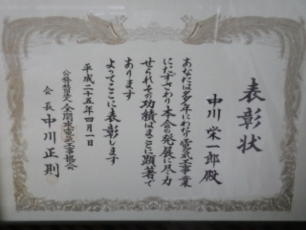 表彰状
中川栄一郎殿
あなたは多年にわたり電気工事業
にたずさわり本会の発展に尽力
せられその功績はまことに顕著で
あります
よってここに表彰します
平成二十五年四月一日
会長中川正則